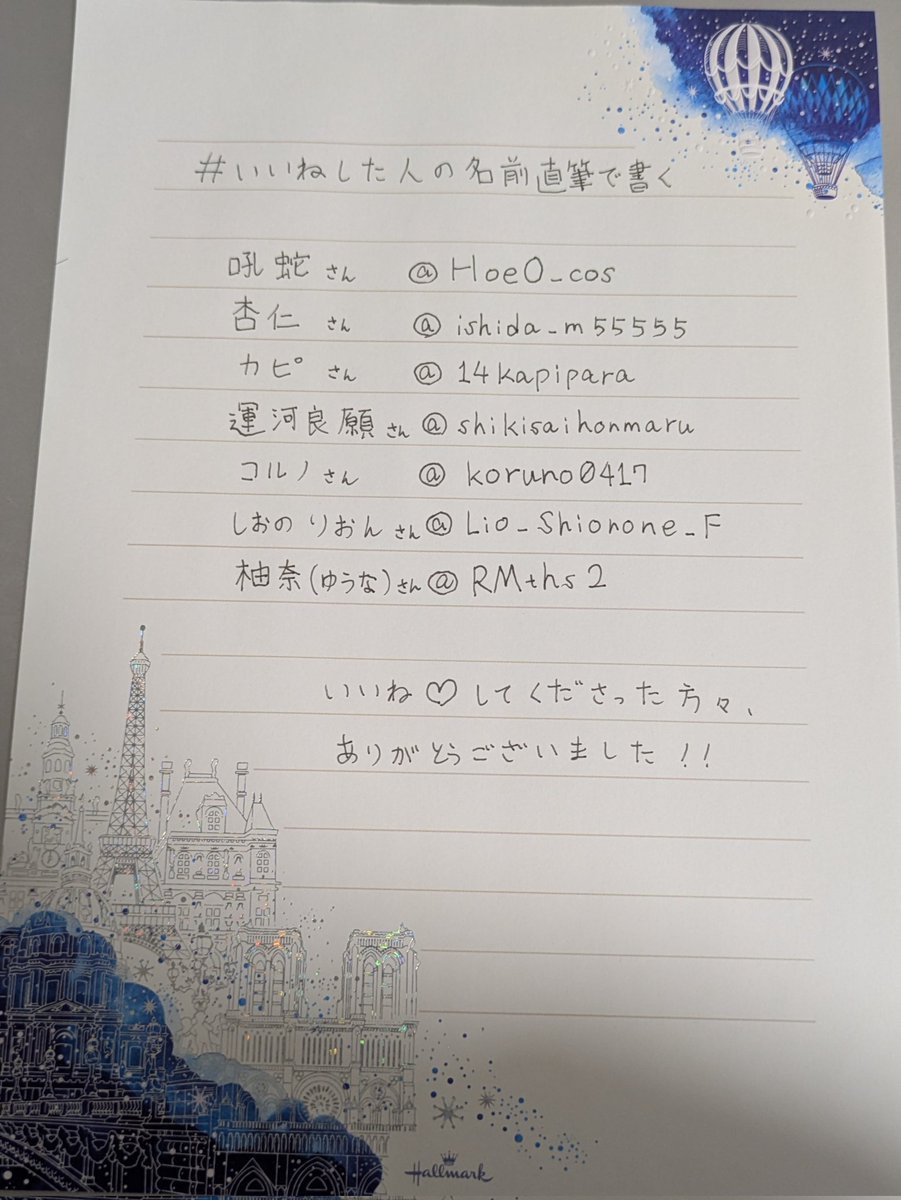 #いいねした人の名前直筆で書く
吼蛇さん @HoeO_cos
杏仁さん @ishida_m55555
カピさん @14kapipara
運河良願さん@shikisaihonmaru
コルノさん @koruno0417
しおのりおんさん@Lio_Shionone_F
柚奈(ゆうな)さん@RMths2
いいね♡してくださった方々、
ありがとうございました!!
Hallmark